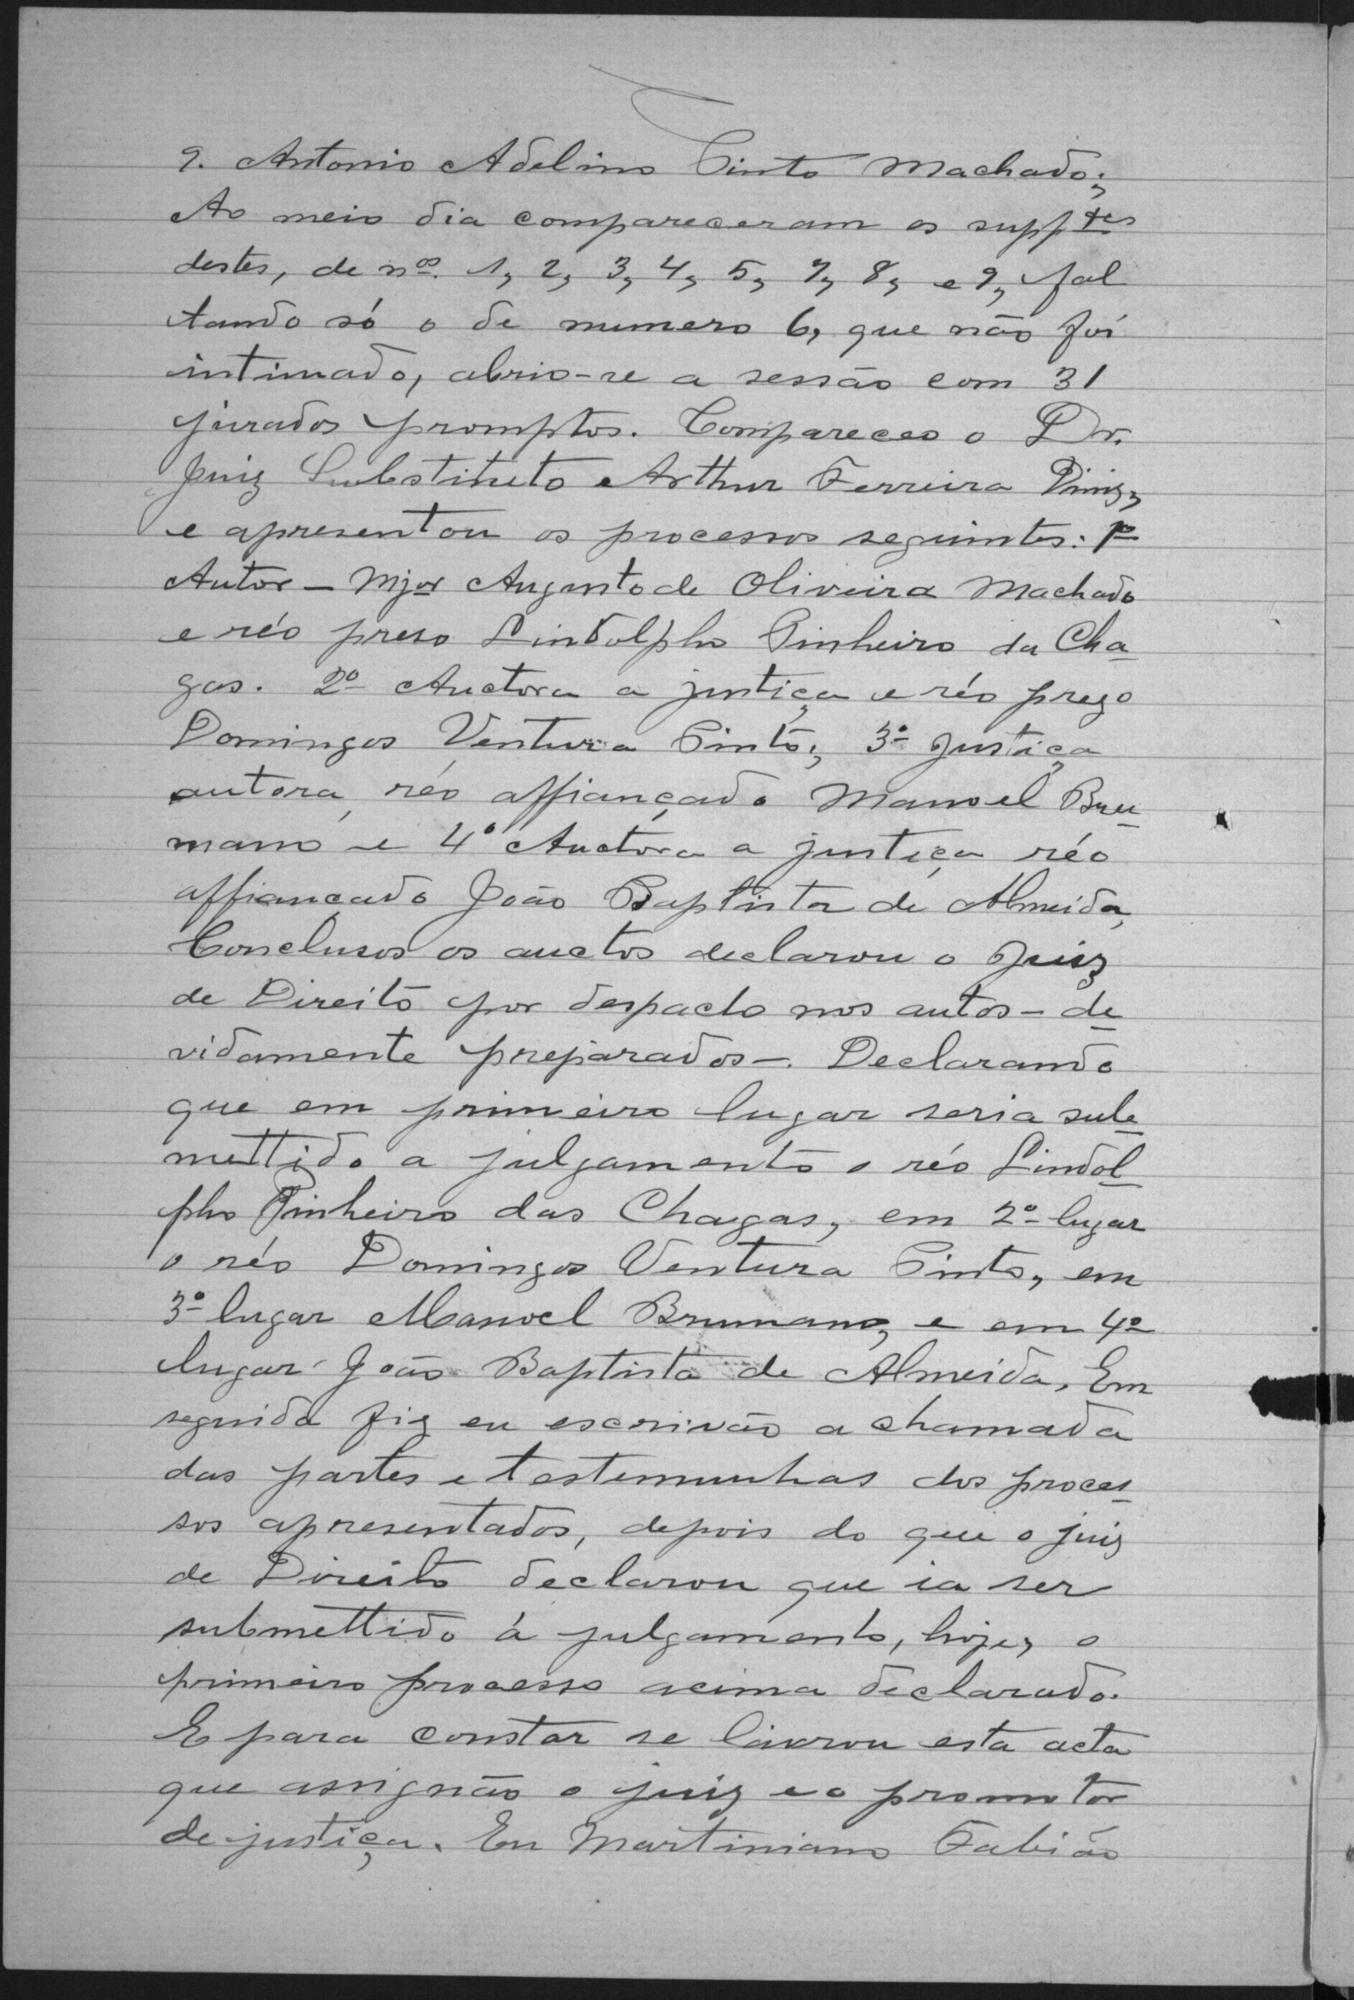 9. Antonio Adelino Pinto Machado;
Ao meio dia compareceram os supptes
destes, de nos. 1, 2, 3, 4, 5, 7, 8, e 9, fal
tando só o de numero 6, que não foi
intimado, abrio-se a sessão com 31
jurados promptos. Compareceo o Dr.
Juiz Substituto Arthur Ferreira Diniz,
e apresentou os processos seguintes: 1º
Autor - Mjor Augusto de Oliveira Machado
e réo preso Lindolpho Pinheiro da Cha-
gas. 2º Auctora a justiça e réo prezo
Domingos Ventura Pinto; 3º Justiça
autora, réo affiançado Manoel Bru-
mano e 4º Auctora a justiça réo
affiançado João Baptista de Almeida,
Conclusos os auctos declarou o Juiz
de Direito por despacto nos autos - de-
vidamente preparados -. Declarando
que em primeiro lugar seria sub-
mettido a julgamento o réo Lindol-
pho Pinheiro das Chagas, em 2º lugar
o réo Domingos Ventura Pinto, em
3º lugar Manoel Brumano, e em 4º
lugar João Baptista de Almeida. Em
seguida fiz eu escrivão a chamada
das partes e testemunhas dos proces-
sos apresentados, depois do que o juiz
de Direito declarou que ia ser
submettido á julgamento, hoje, o
primeiro processo acima declarado.
E para constar se lavrou esta acta
que assignão o juiz e o promotor
de justiça. Eu Martiniano Fabião